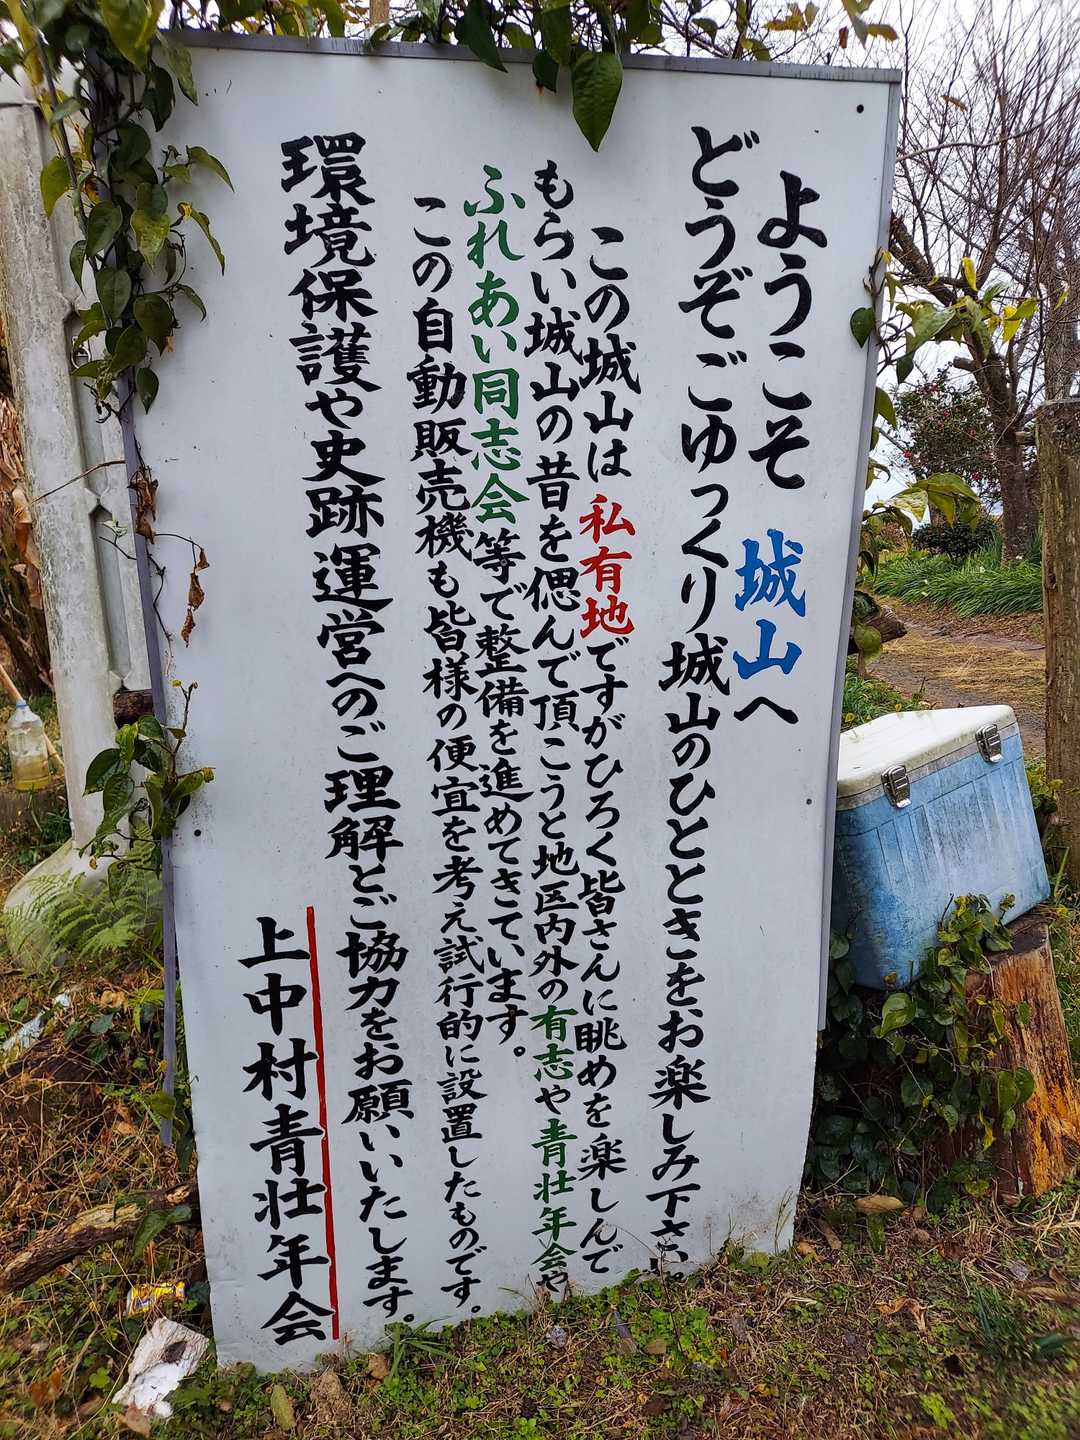 ようこそ 城山へ
どうぞごゆっくり城山のひとときをお楽しみ下さい。
この城山は私有地ですがひろく皆さんに眺めを楽しんで
もらい城山の昔を偲んで頂こうと地区内外の有志や青壮年会や
ふれあい同志会等で整備を進めてきています。
この自動販売機も皆様の便宜を考え試行的に設置したものです。
環境保護や史跡運営へのご理解とご協力をお願いいたします。
上中村青壮年会